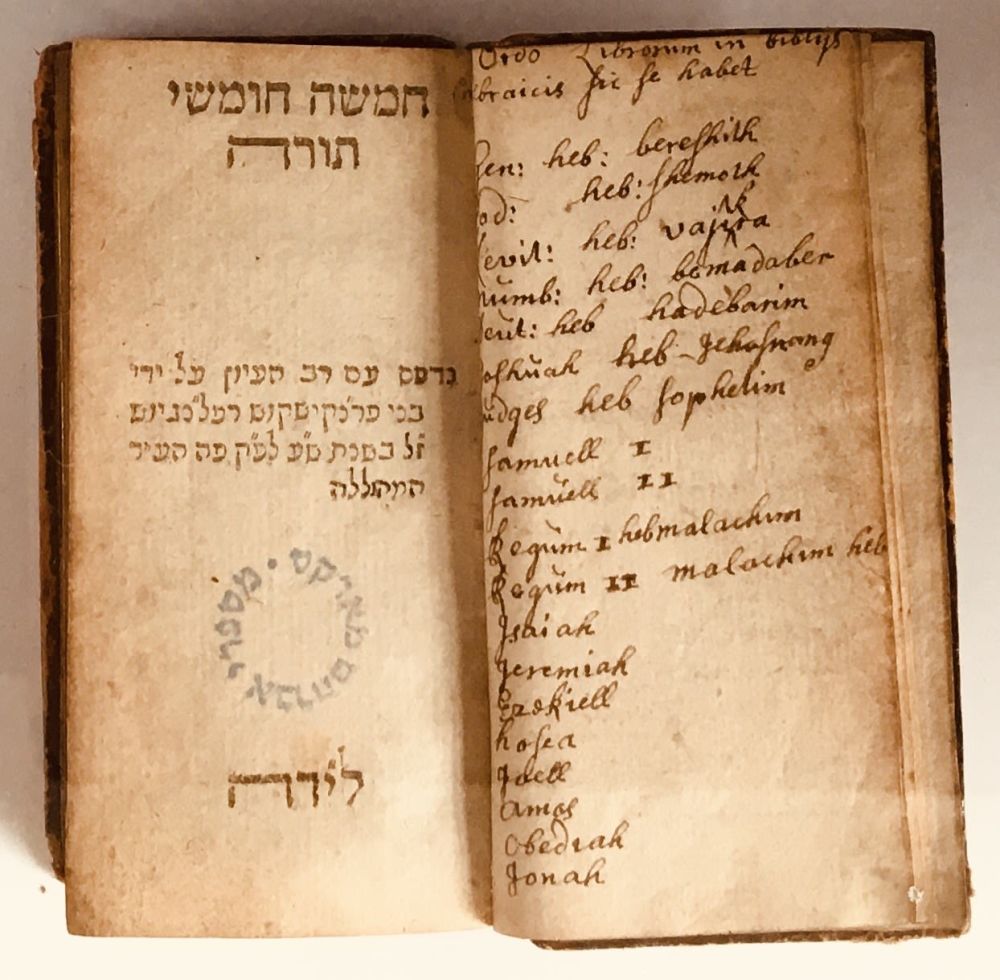 חמשה חומשי
תורה
נדפס עם רב העיון על ידי
בני פרנקישקוש רפלנגיוש
ז״ל בשנת ש״ע לפ״ק פה העיר
המהוללה
אברהם מארקס
לידה
Ordo Librorum in biblijs
hebraicis sic se habet
Gen: heb: bereshith
od: heb: shemoth
levit: heb: vajikra
numb: heb: bemadaber
eut: heb hadebarim
oshuah heb - Jehosnang
udges heb sophetim
Samuell I
Samuell II
Regum I heb malachim
Regum II malachim heb
Isaiah
Jeremiah
Ezekiell
hosea
Joell
Amos
Obediah
Jonah